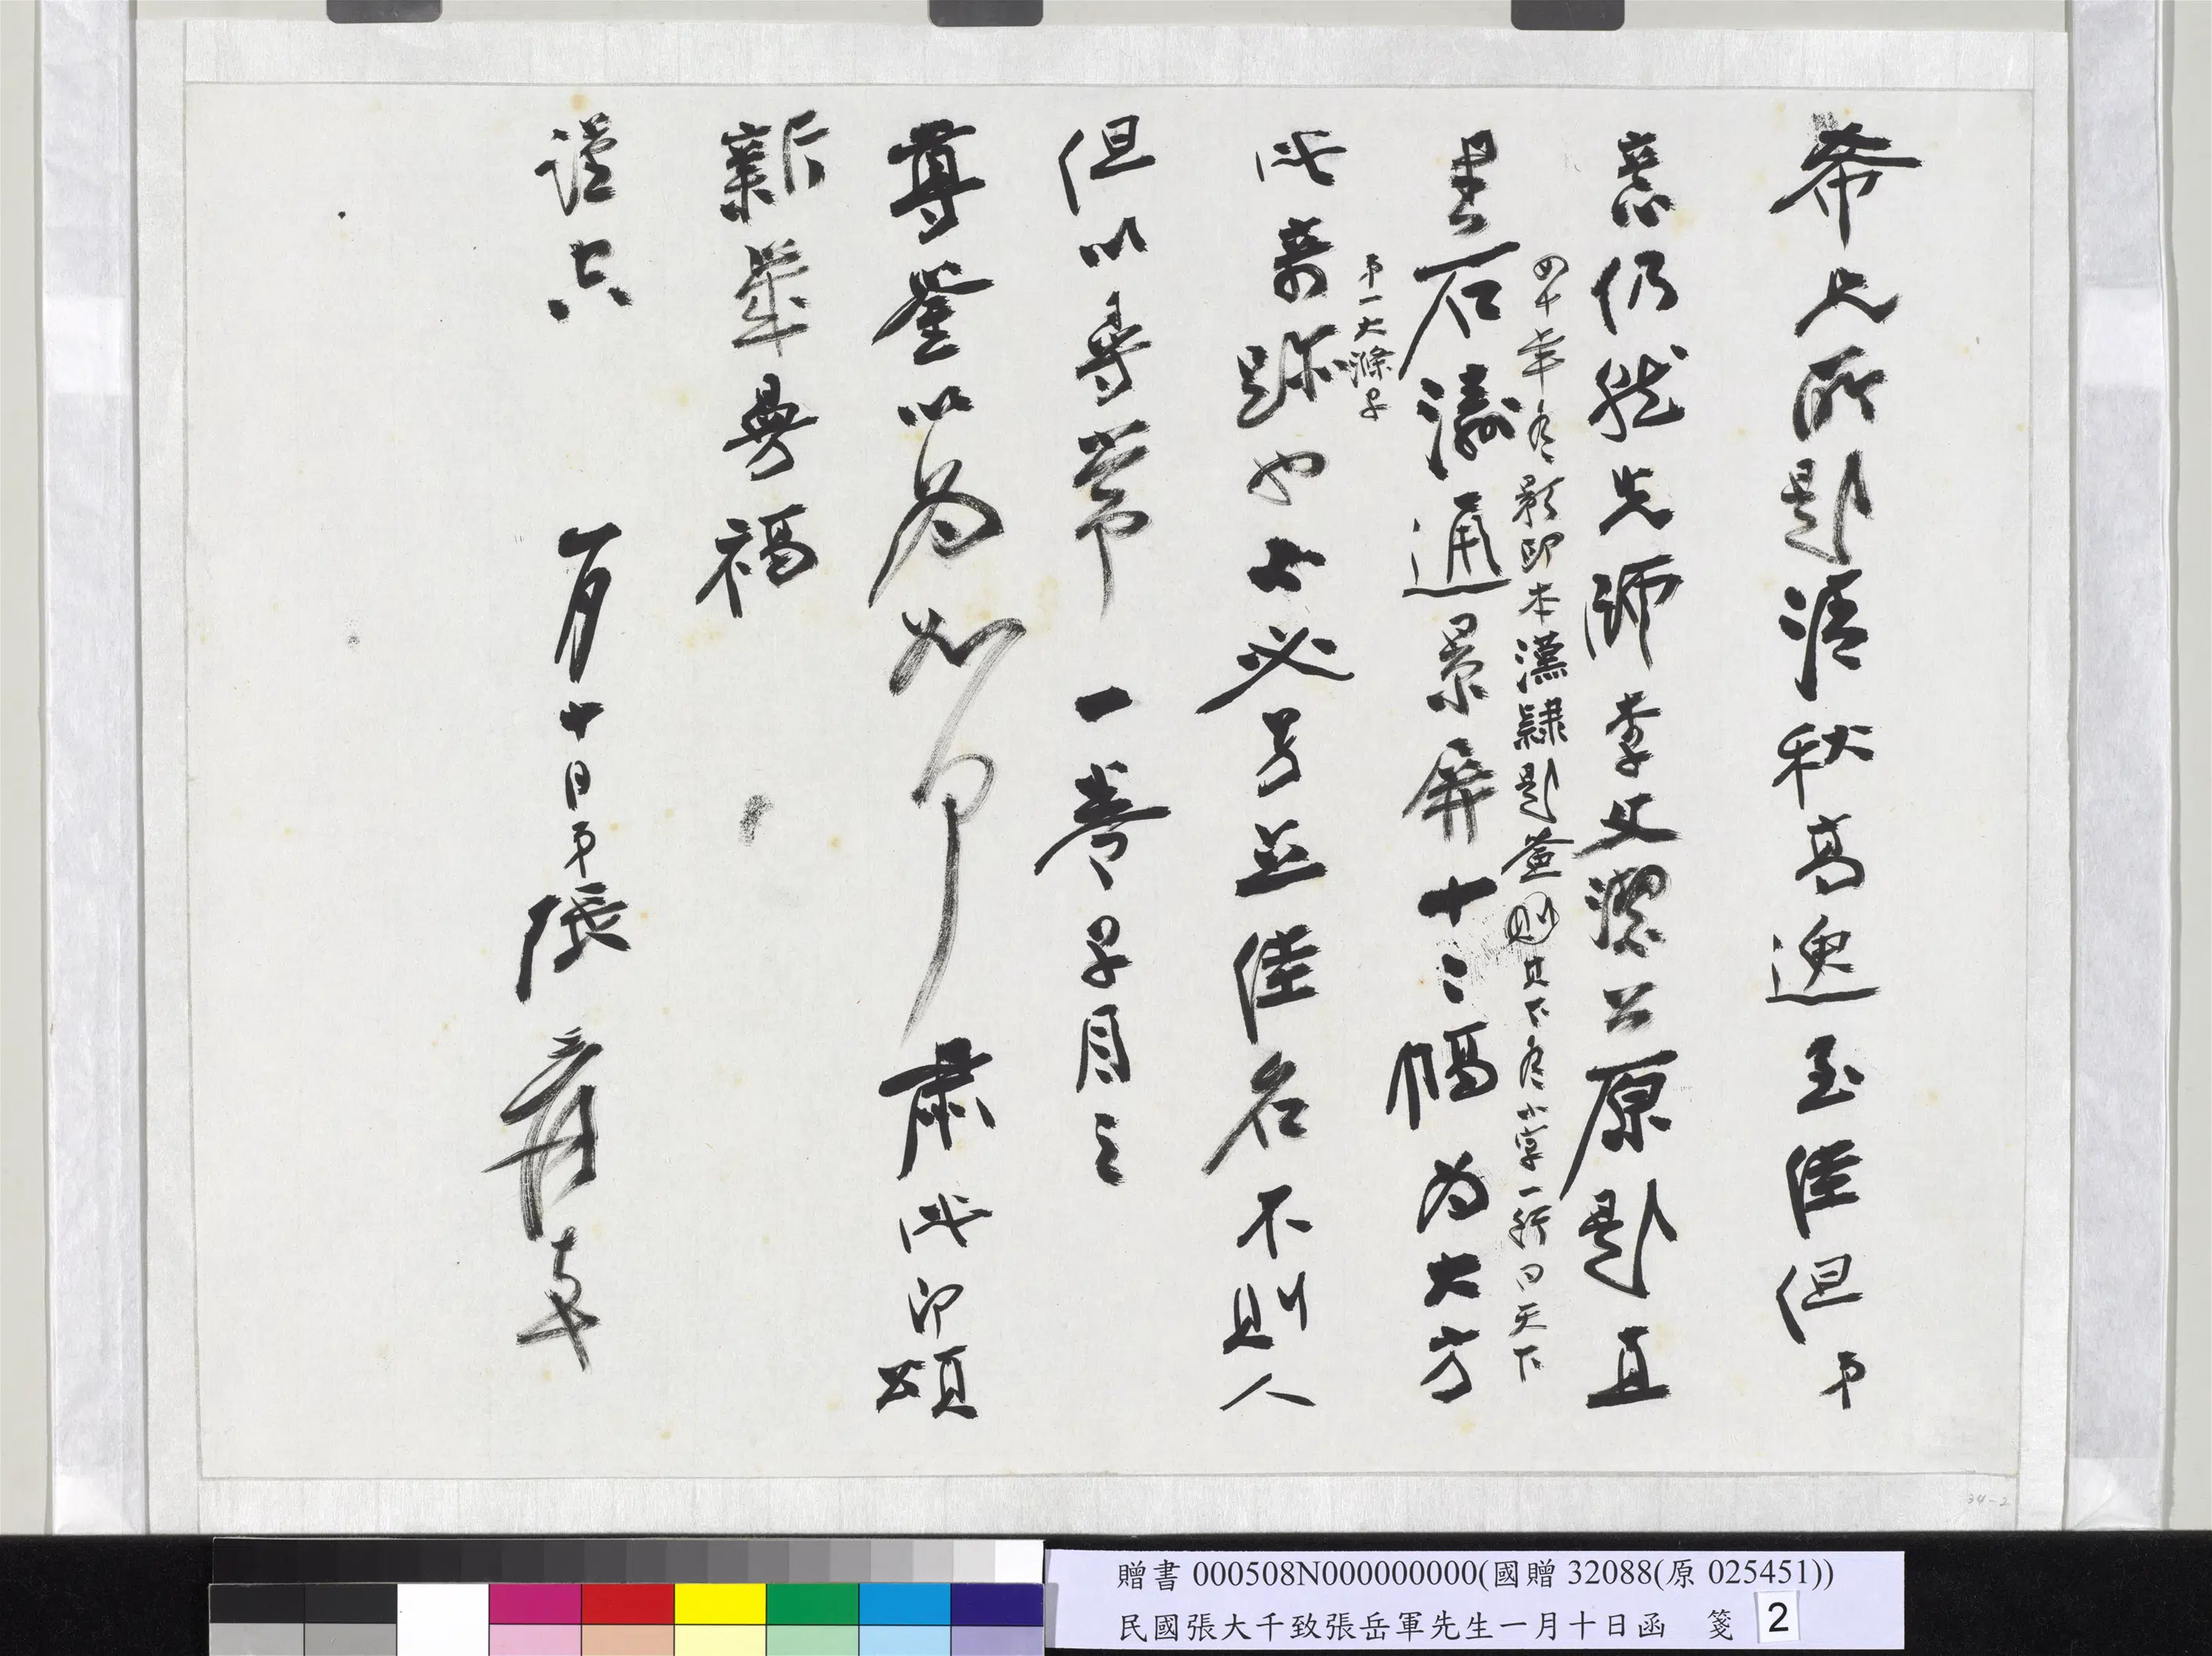 希兄所題清秋高逸至佳但弟
意仍然先師李文潔公原題直
四十年前影印本漢隸題簽其下有小字一行曰天下
書石濤通景屏十二幅為大方
第一大滌子
此奇跡也七必另並佳名不則人
但以尋常一卷子目之
尊鑒以為如何肅此即頌
新年曼福
謹上
一月十日弟張爰頓首
34-2
贈書 000508N000000000(國贈 32088(原 025451))
民國張大千致張岳軍先生一月十日函 箋 2